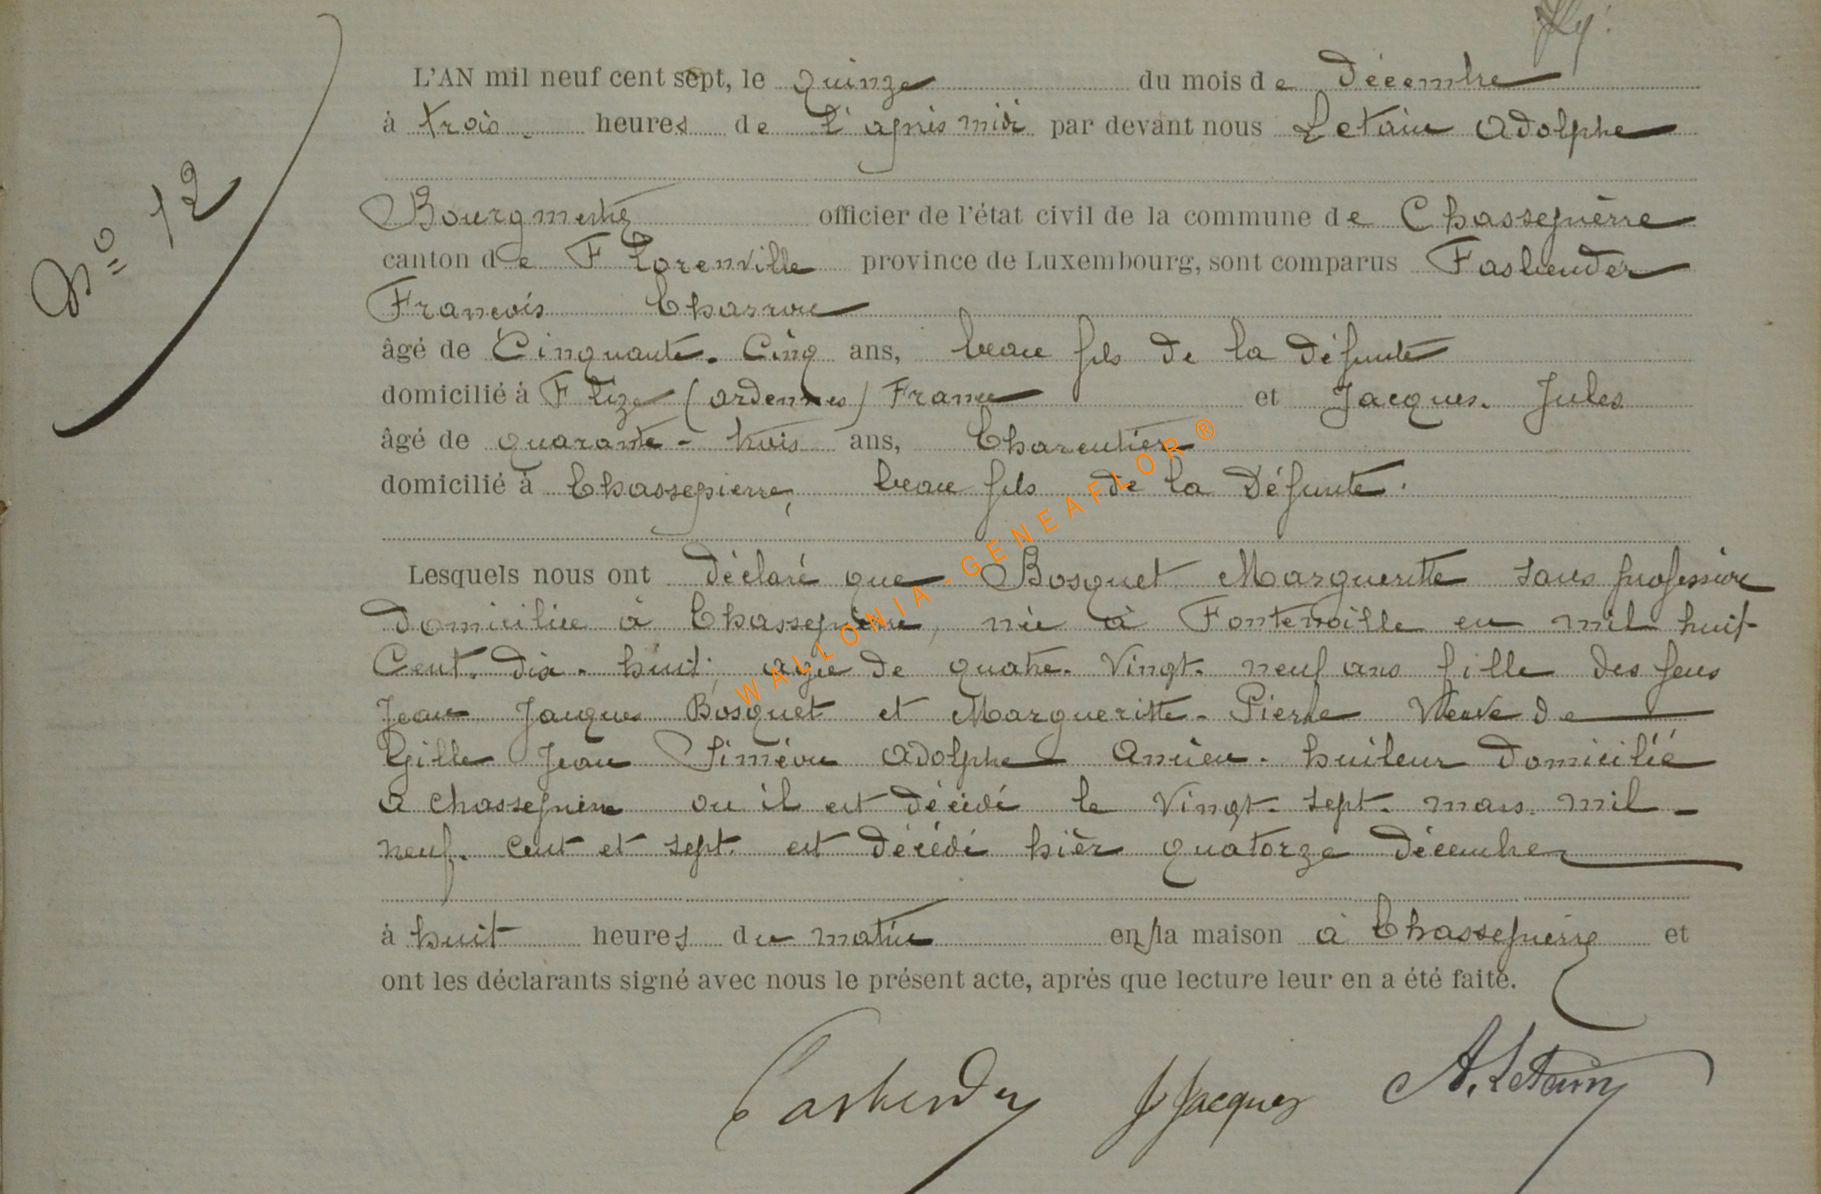 N° 12
L'AN mil neuf cent sept, le quinze du mois de Décembre
à trois heures de l'après midi par devant nous Letain Adolphe
Bourgmestre officier de l'état civil de la commune de Chassepierre
canton de Florenville province de Luxembourg, sont comparus Fasbender
François Charron
âgé de Cinquante-Cinq ans, beau fils de la défunte
domicilié à Flize (ardennes) France et Jacques Jules
âgé de quarante-trois ans, Charcutier
domicilié à Chassepierre, beau fils de la Défunte.
Lesquels nous ont déclaré que Bosquet Margueritte sans profession
domiciliée à Chassepierre, née à Fontenoille en mil huit
Cent. dix-huit, agée de quatre-Vingt-neuf ans fille des feus
Jean Jacques Bosquet et Margueritte-Pierre Veuve de
Gille Jean Siméon Adolphe Ancien-huileur Domicilié
a chassepierre ou il est décédé le Vingt-sept-mars mil-
neuf-cent et sept. est décédé hièr quatorze décembre
à huit heures du matin en la maison à Chassepierre et
ont les déclarants signé avec nous le présent acte, après que lecture leur en a été faite.
Fasbender J Jacques A. Letain
WALLONIA-GENEAFLOR®